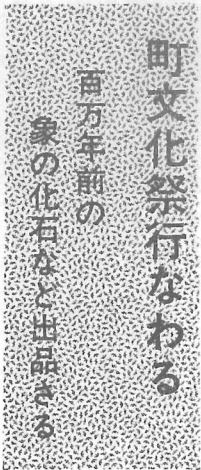 町文化祭行なわる
百万年前の
象の化石など出品さる